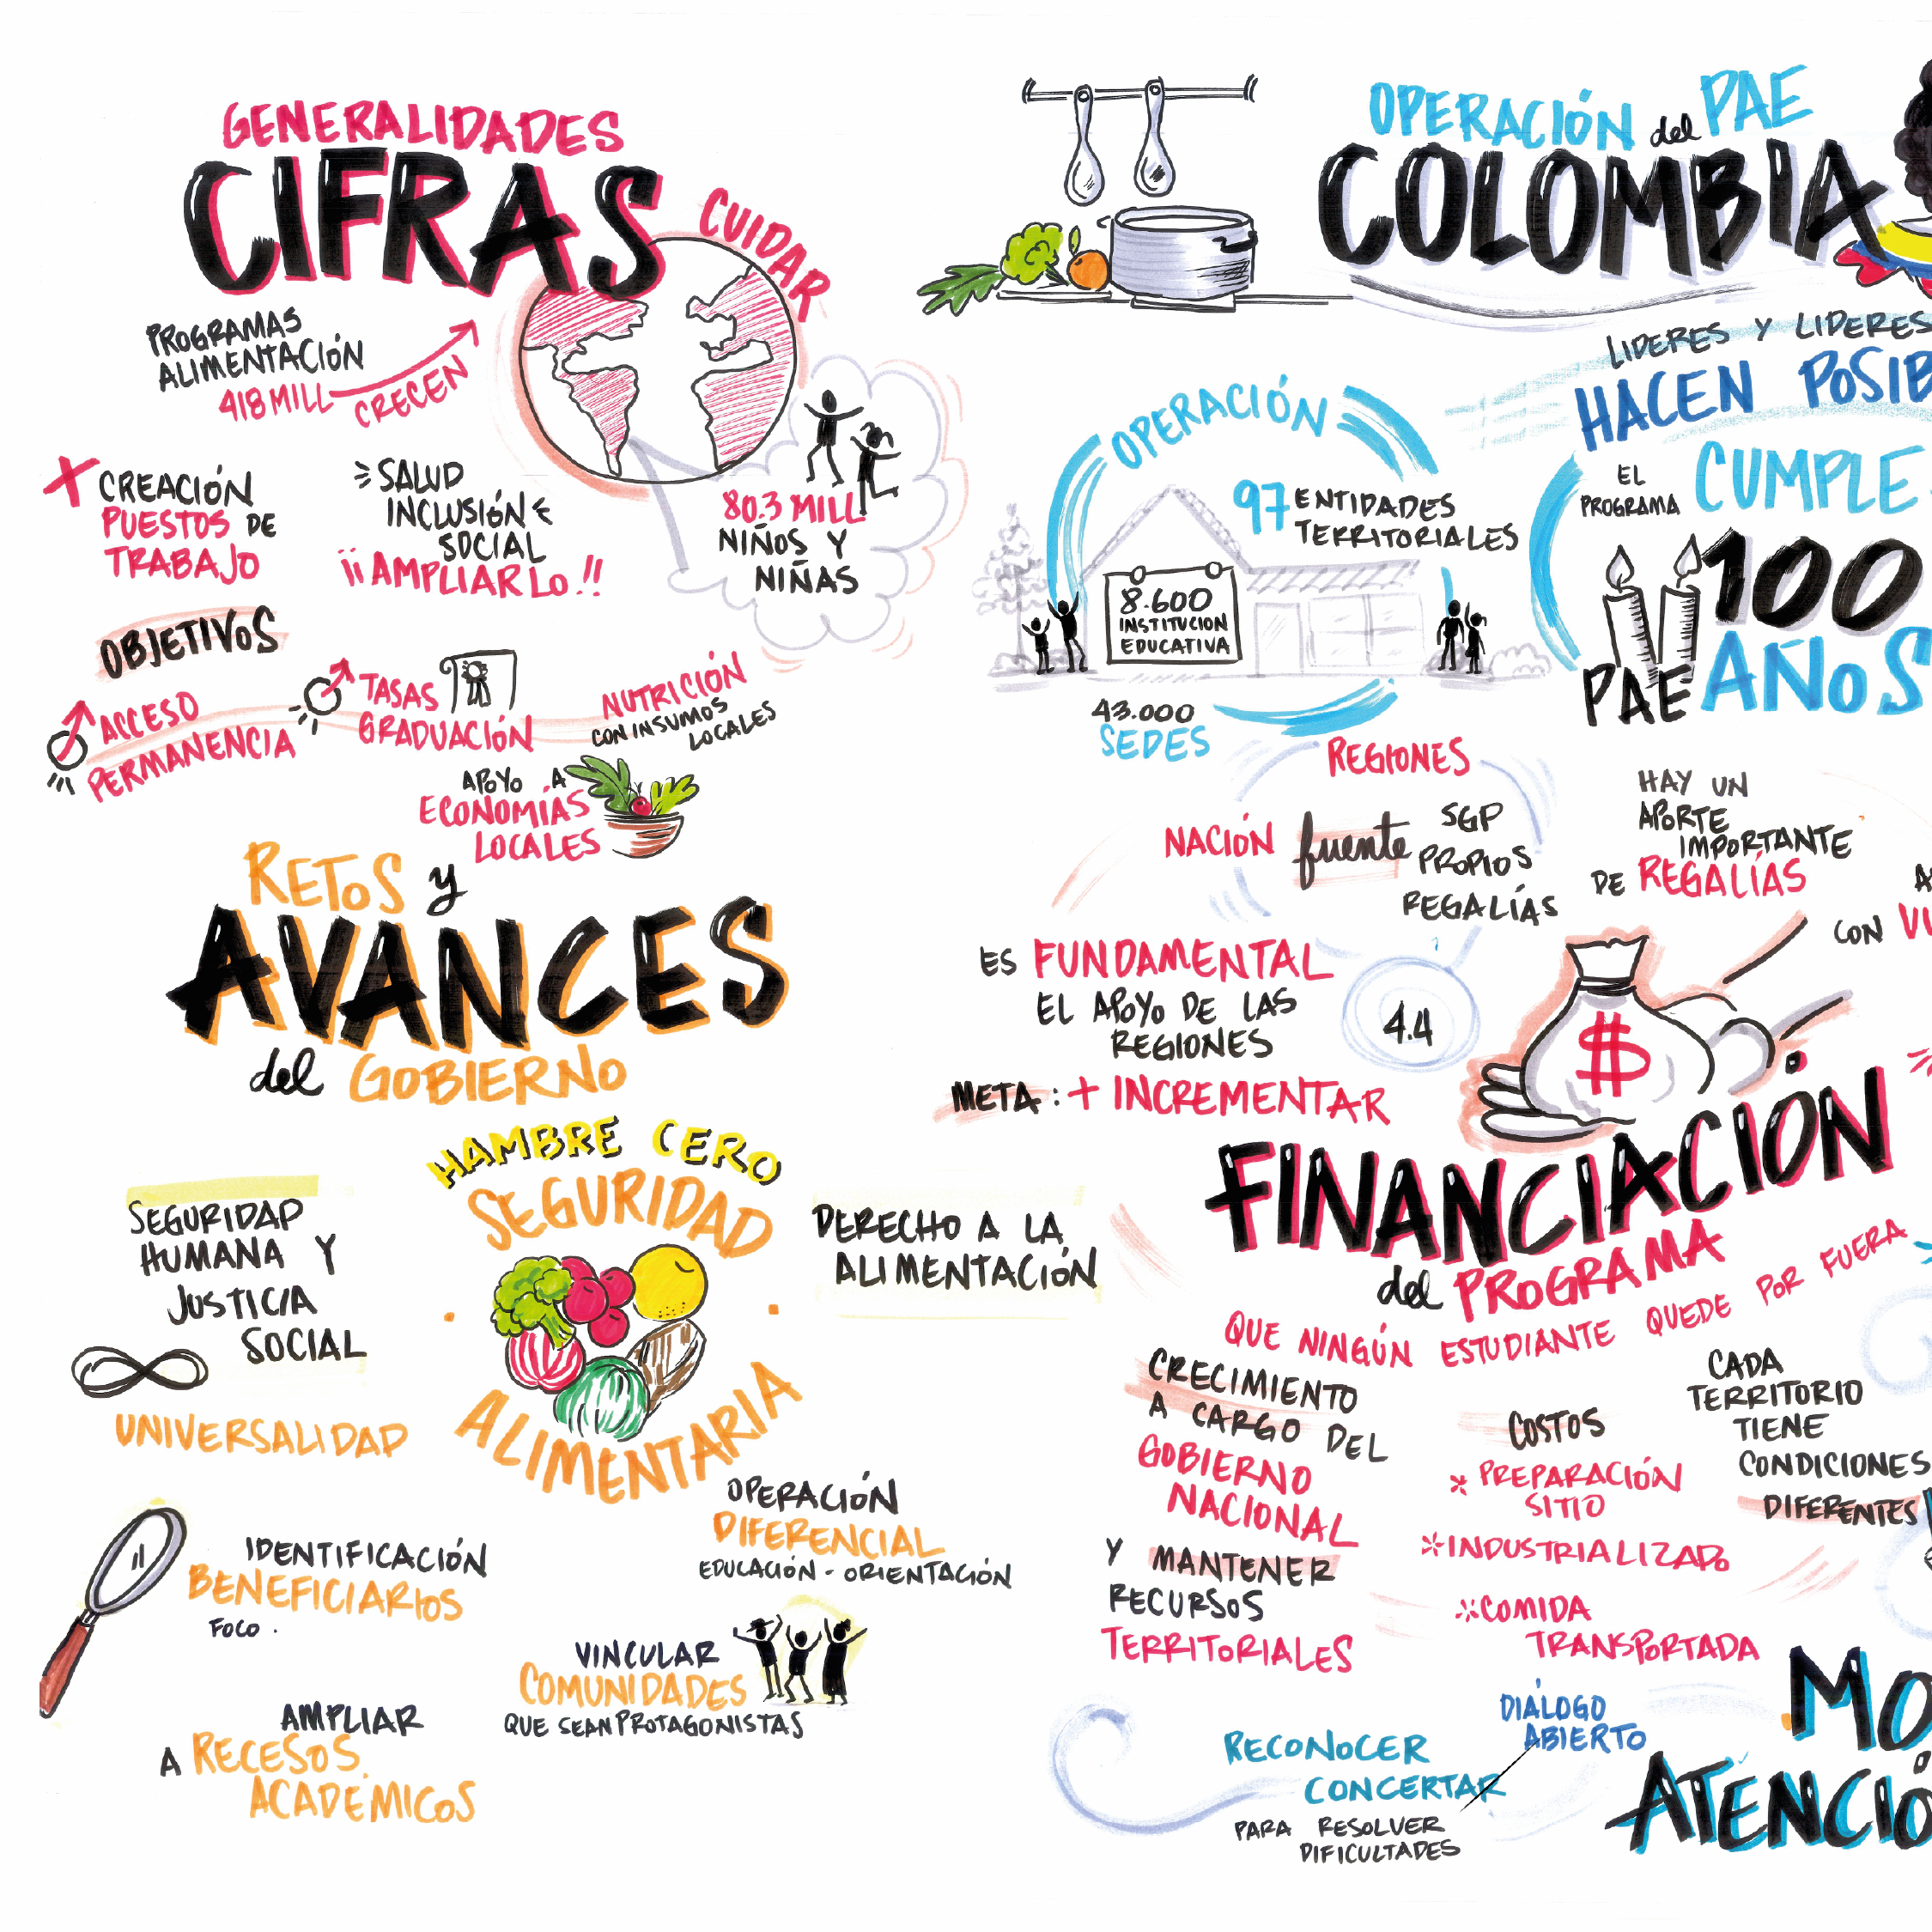 GENERALIDADES
CIFRAS
CUIDAR
PROGRAMAS
ALIMENTACIÓN
418 MILL
CRECEN
+ CREACIÓN
PUESTOS DE
TRABAJO
SALUD
INCLUSIÓN
SOCIAL
¡¡ AMPLIARLO !!
80.3 MILL
NIÑOS Y
NIÑAS
OBJETIVOS
ACCESO
PERMANENCIA
TASAS
GRADUACIÓN
NUTRICIÓN
CON INSUMOS
LOCALES
APOYO A
ECONOMÍAS
LOCALES
RETOS y
AVANCES
del GOBIERNO
HAMBRE CERO
SEGURIDAD
ALIMENTARIA
SEGURIDAD
HUMANA Y
JUSTICIA
SOCIAL
UNIVERSALIDAD
DERECHO A LA
ALIMENTACIÓN
IDENTIFICACIÓN
BENEFICIARIOS
FOCO.
OPERACIÓN
DIFERENCIAL
EDUCACIÓN - ORIENTACIÓN
VINCULAR
COMUNIDADES
QUE SEAN PROTAGONISTAS
AMPLIAR
A RECESOS
ACADÉMICOS
OPERACIÓN del PAE
COLOMBIA
LIDERES Y LIDERES
HACEN POSIB
OPERACIÓN
97 ENTIDADES
TERRITORIALES
8.600
INSTITUCION
EDUCATIVA
43.000
SEDES
EL
PROGRAMA
CUMPLE
100
AÑOS
PAE
REGIONES
NACIÓN fuente
SGP
PROPIOS
REGALÍAS
HAY UN
APORTE
IMPORTANTE
DE REGALÍAS
CON
ES FUNDAMENTAL
EL APOYO DE LAS
REGIONES
4.4
META: + INCREMENTAR
$
FINANCIACIÓN
del PROGRAMA
QUE NINGÚN ESTUDIANTE QUEDE POR FUERA
CRECIMIENTO
A CARGO DEL
GOBIERNO
NACIONAL
Y MANTENER
RECURSOS
TERRITORIALES
COSTOS
* PREPARACIÓN
SITIO
* INDUSTRIALIZADO
* COMIDA
TRANSPORTADA
CADA
TERRITORIO
TIENE
CONDICIONES
DIFERENTES
DIÁLOGO
ABIERTO
RECONOCER
CONCERTAR
PARA RESOLVER
DIFICULTADES
MO
ATENCIÓ